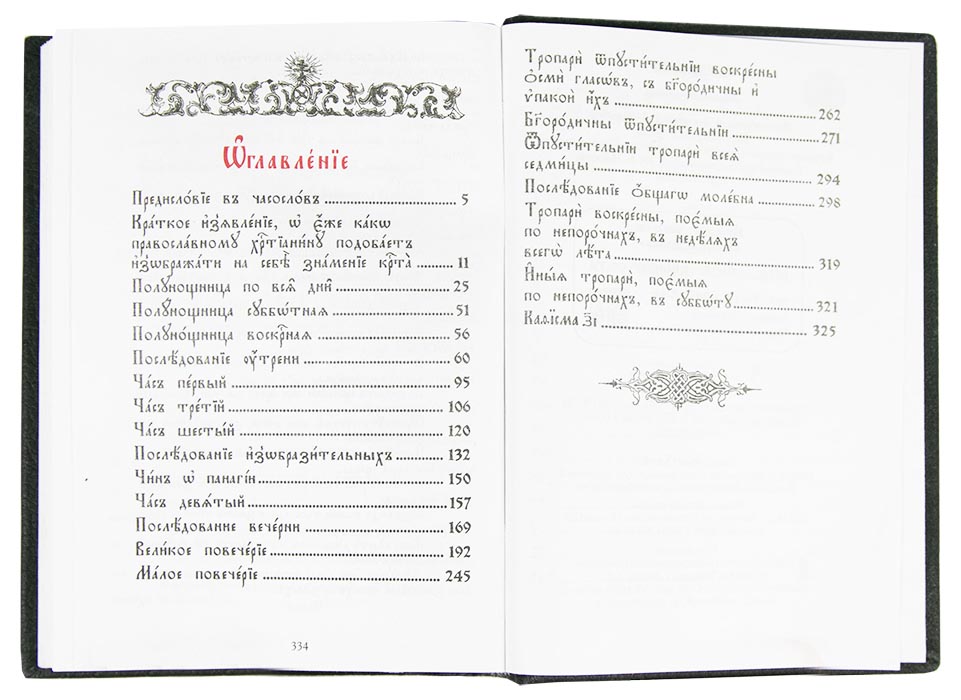 Ѡ҆главле́нїе
Предисло́вїе въ часосло́въ 5
Кра́ткое и҆з̾ѧвле́нїе, ѡ҆ є҆́же ка́кѡ
правосла́вному хрⷭ҇тїани́ну подоба́етъ
и҆з̾ѡбража́ти на себѣ̀ зна́менїе крⷭ҇та̀ 11
Полу́нощница по всѧ̑ дни̑ 25
Полу́нощница суббѡ́тная 51
Полу́но́щница воскрⷭ҇ная 56
Послѣ́дованїе оу҆́трени 60
Ча́съ пе́рвый 95
Ча́съ тре́тїй 106
Ча́съ шесты́й 120
Послѣ́дованїе и҆з̾ѡбрази́тельныхъ 132
Чи́нъ ѡ҆ панагі́и 150
Ча́съ девѧ́тый 157
Послѣ́дование вече́рни 169
Вели́кое повече́рїе 192
Ма́лое повече́рїе 245
334
Тропарѝ ѿпусти́тельнїи воскре́сны
ѻ҆смѝ гласѡ́въ, съ бг҃оро́дичны и҆
ѵ҆пакои̑ и҆́хъ 262
Бг҃оро́дичны ѿпусти́тельнїи 271
Ѿпусти́тельнїи тропарѝ всеѧ̀
седми́цы 294
Послѣ́дованїе ѻ҆́бщагѡ моле́бна 298
Тропарѝ воскре́сны, пое́мыя
по непоро́чнахъ, въ недѣ́лѧхъ
всегѡ̀ лѣ́та 319
И҆ны́ѧ тропарѝ, пое́мыя
по непоро́чнахъ, въ суббѡ́ту 321
Каѳі́сма з҃і 325